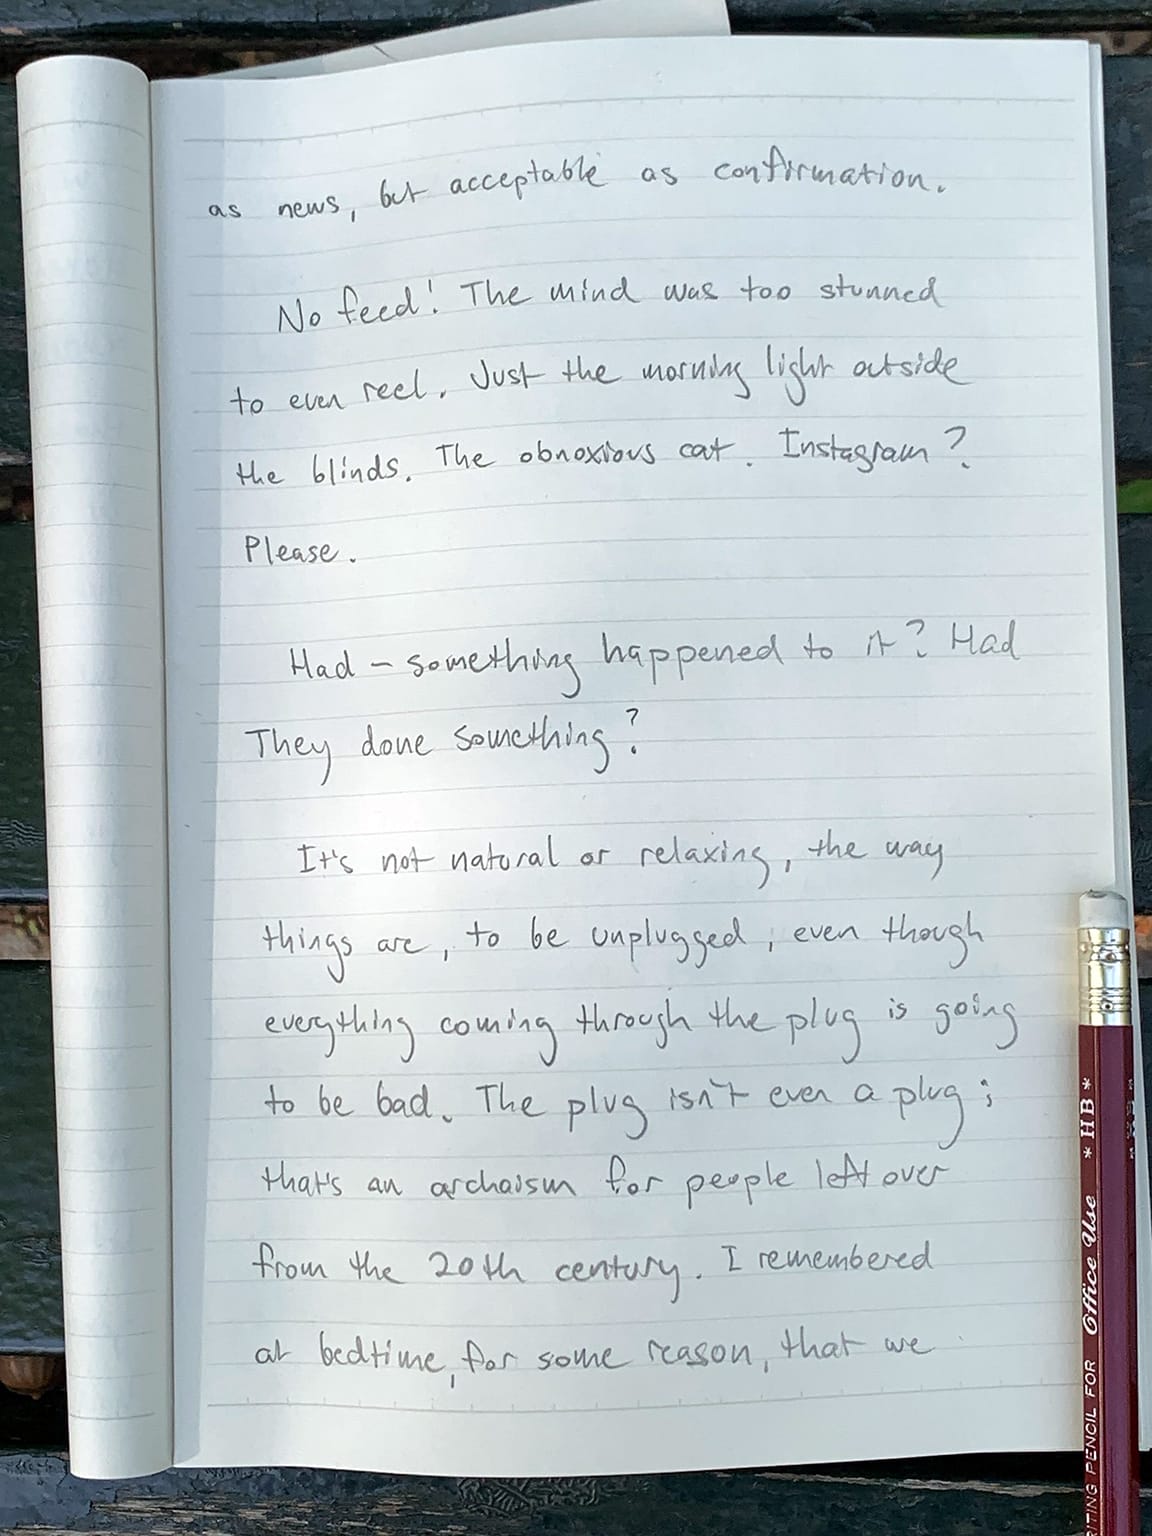 as news, but acceptable as confirmation.
No feed! The mind was too stunned
to even reel. Just the morning light outside
the blinds. The obnoxious cat. Instagram?
Please.
Had – something happened to it? Had
They done something?
It's not natural or relaxing, the way
things are, to be unplugged, even though
everything coming through the plug is going
to be bad. The plug isn't even a plug;
that's an archaism for people left over
from the 20th century. I remembered
at bedtime, for some reason, that we
ITING PENCIL FOR Office Use *HB*